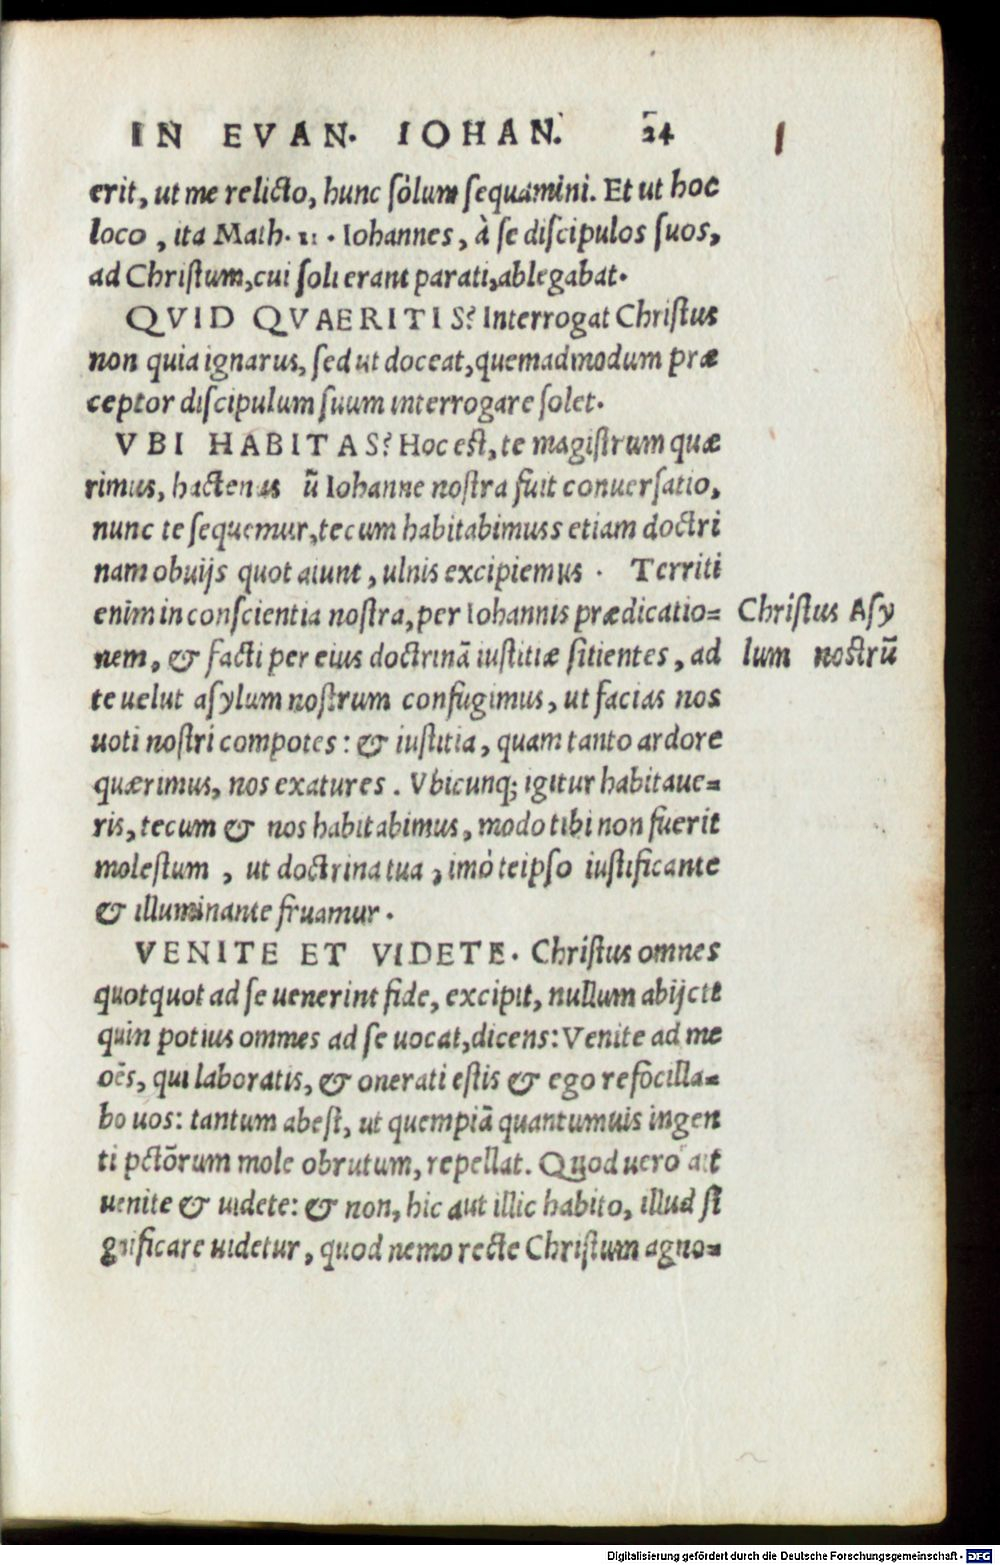 IN EVAN. IOHAN. 24 1
erit, ut me relicto, hunc sòlum sequamini. Et ut hoc
loco, ita Math. 11. Iohannes, à se discipulos suos,
ad Christum, cui soli erant parati, ablegabat.
QVID QVAERITIS? Interrogat Christus
non quia ignarus, sed ut doceat, quemadmodum præ
ceptor discipulum suum interrogare solet.
VBI HABITAS? Hoc est, te magistrum quæ
rimus, hactenus ũ Iohanne nostra fuit conuersatio,
nunc te sequemur, tecum habitabimuss etiam doctri
nam obuijs quot aiunt, ulnis excipiemus. Territi
enim in conscientia nostra, per Iohannis prædicatio=
nem, & facti per eius doctrinã iustitiæ sitientes, ad
te uelut asylum nostrum confugimus, ut facias nos
uoti nostri compotes: & iustitia, quam tanto ardore
quærimus, nos exatures. Vbicunq; igitur habitaue=
ris, tecum & nos habitabimus, modo tibi non fuerit
molestum, ut doctrina tua, imò teipso iustificante
& illuminante fruamur.
VENITE ET VIDETE. Christus omnes
quotquot ad se uenerint fide, excipit, nullum abijcit
quin potius ommes ad se uocat, dicens: Venite ad me
oẽs, qui laboratis, & onerati estis & ego refocilla=
bo uos: tantum abest, ut quempiã quantumuis ingen
ti pctõrum mole obrutum, repellat. Quod uero ait
uenite & uidete: & non, hic aut illic habito, illud si
gnificare uidetur, quod nemo recte Christum agno=
Christus Asy
lum nostrũ
Digitalisierung gefördert durch die Deutsche Forschungsgemeinschaft - DFG